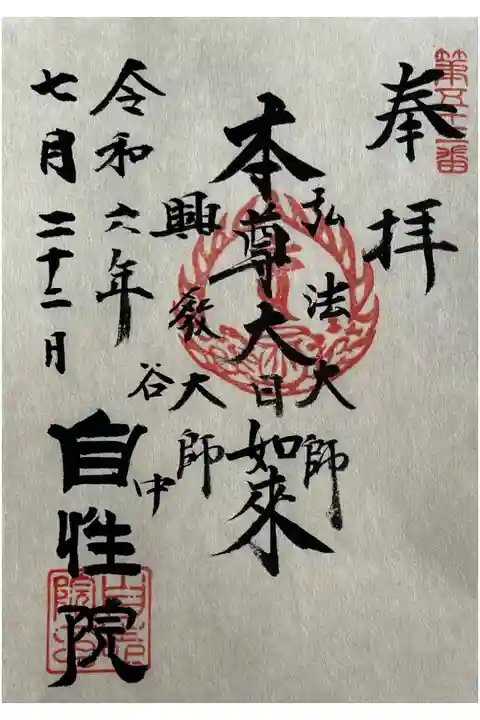 第五十三番
奉拝
弘法大師
本尊大日如來
興教大師
令和六年
七月二十二日
谷中
自性院